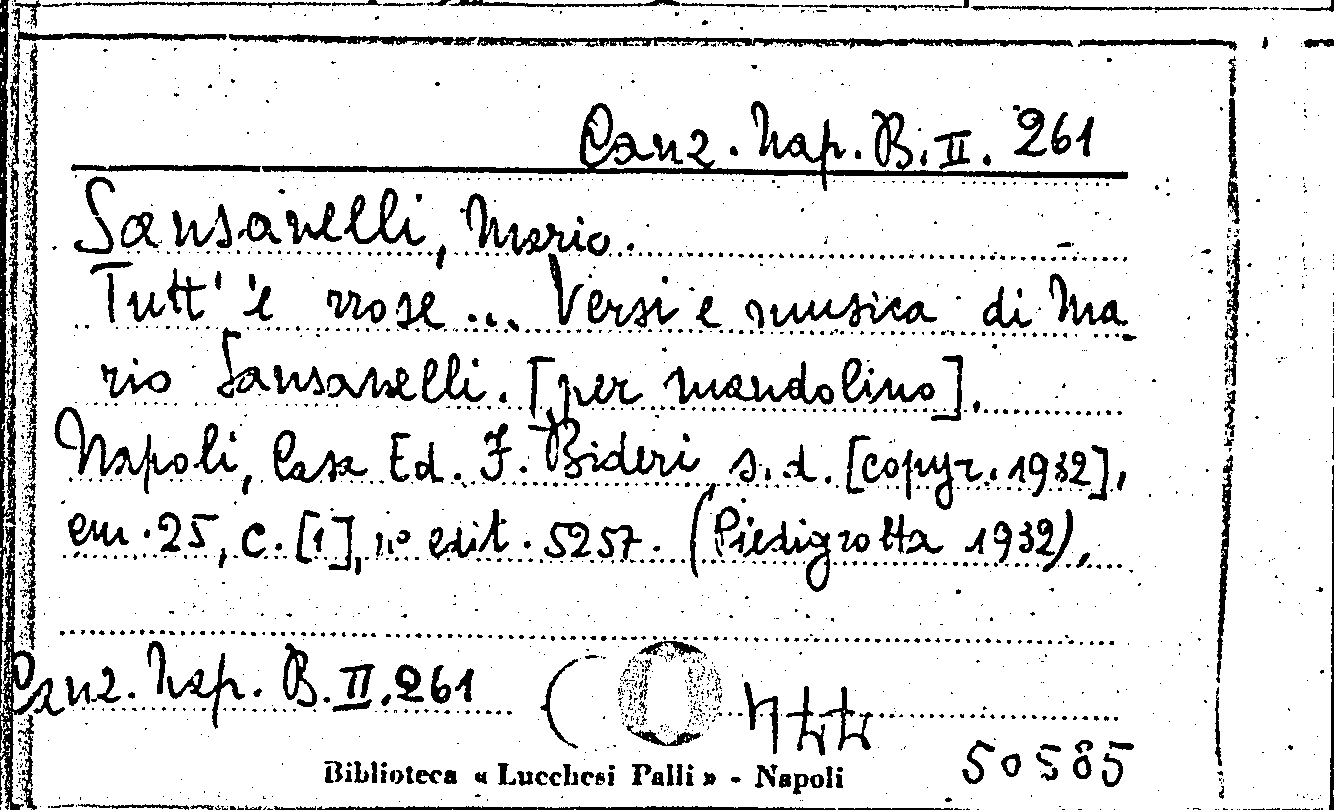 Canz. Nap. B. II. 261
Sansanelli, Mario.
Tutt' 'e rrose ... Versi e musica di Ma
rio Sansanelli. [per mandolino].
Napoli, Casa Ed. F. Bideri, s. d. [copyr. 1932],
cm. 25, c. [1], n° edit. 5257. (Piedigrotta 1932).
Canz. Nap. B. II. 261
Biblioteca « Lucchesi Palli » - Napoli
50585